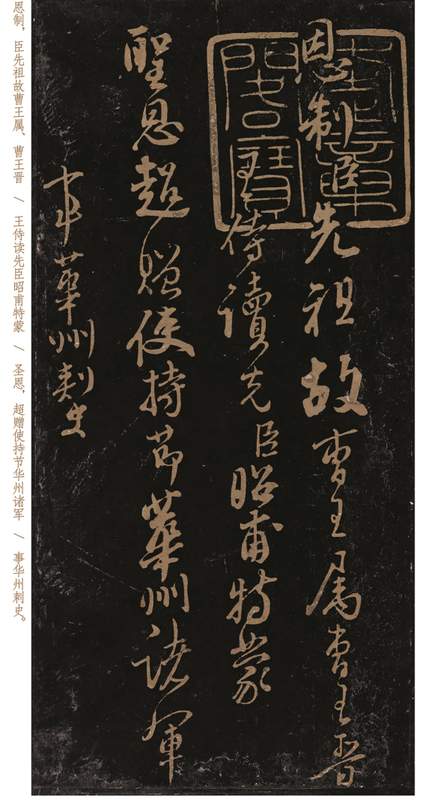 奎章閣寶
恩制臣先祖故曹王属曹王晋
王侍讀先臣昭甫特蒙
聖恩超贈使持節華州諸軍
事華州刺史
恩制，臣先祖故曹王属、曹王晋 / 王侍读先臣昭甫特蒙 / 圣恩，超赠使持节华州诸军 / 事华州刺史。